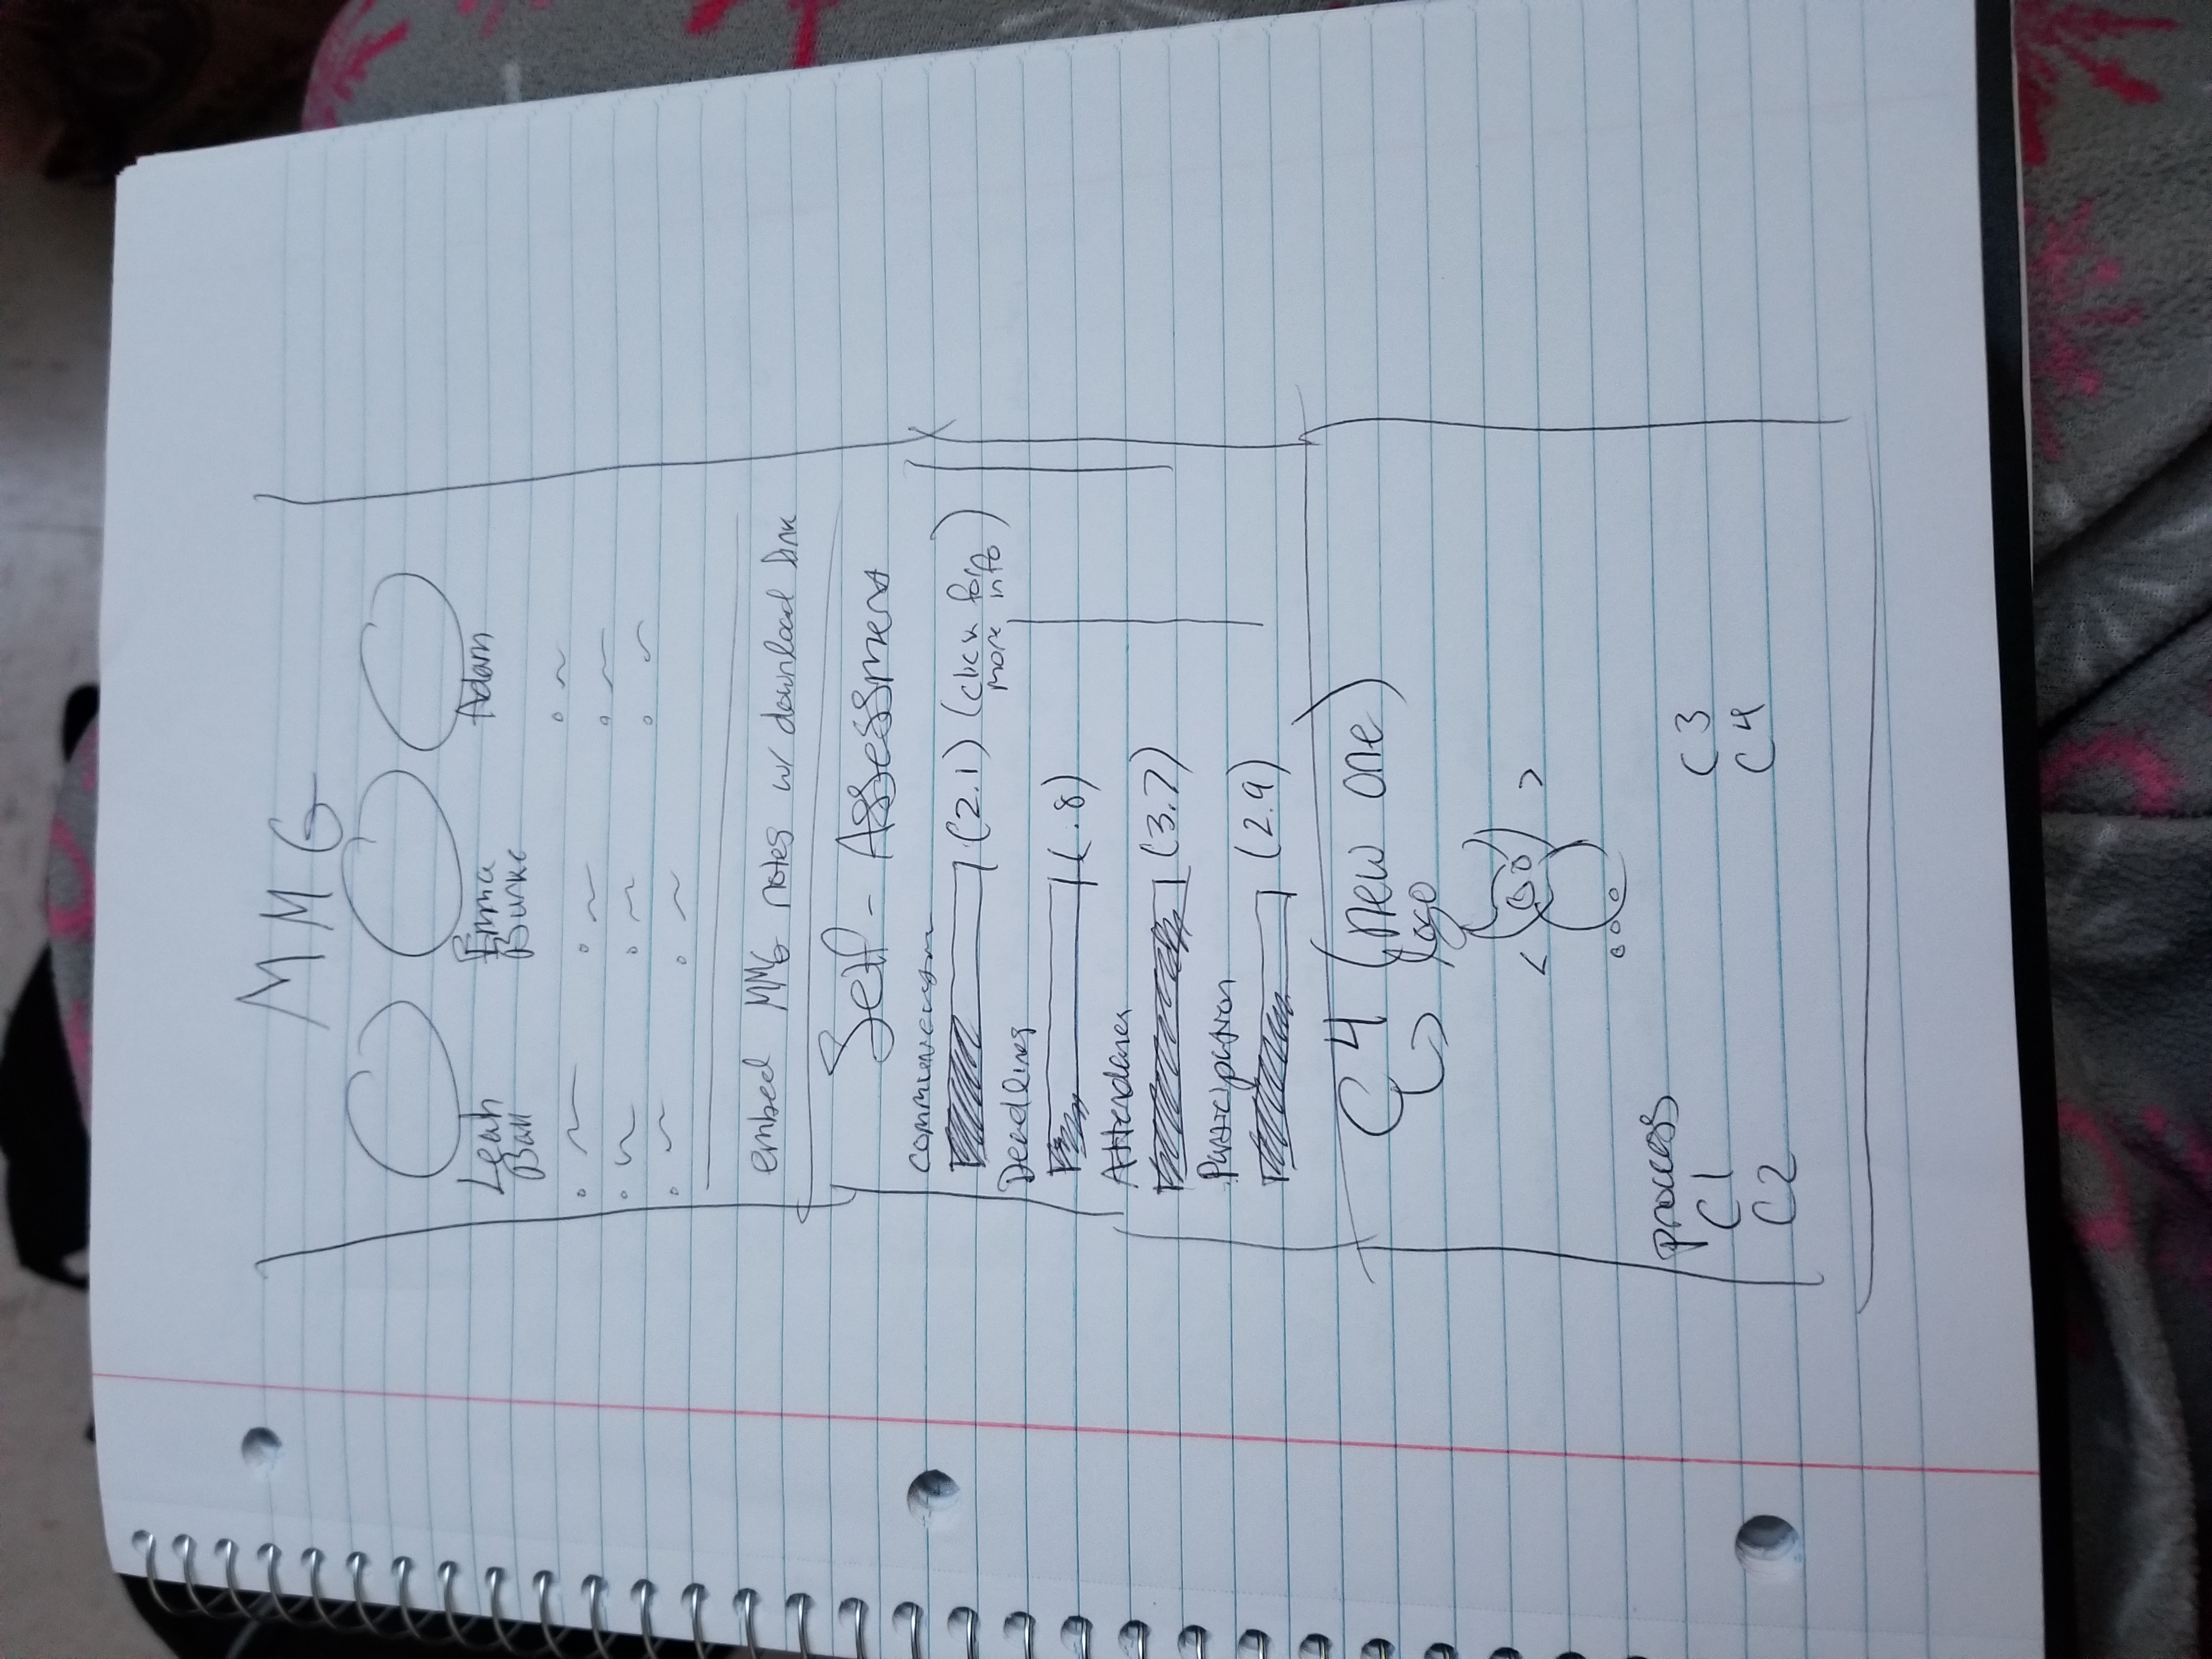 MMG
Leah Emma Adam
Ball Burke
embed MMG notes w/ download link
Self-Assessment
Communication
(2.1) (click for
more info)
Deadlines
(.8)
Attendance
(3.7)
Participation
(2.9)
C4 (new one)
logo
< >
process
C1 C3
C2 C4